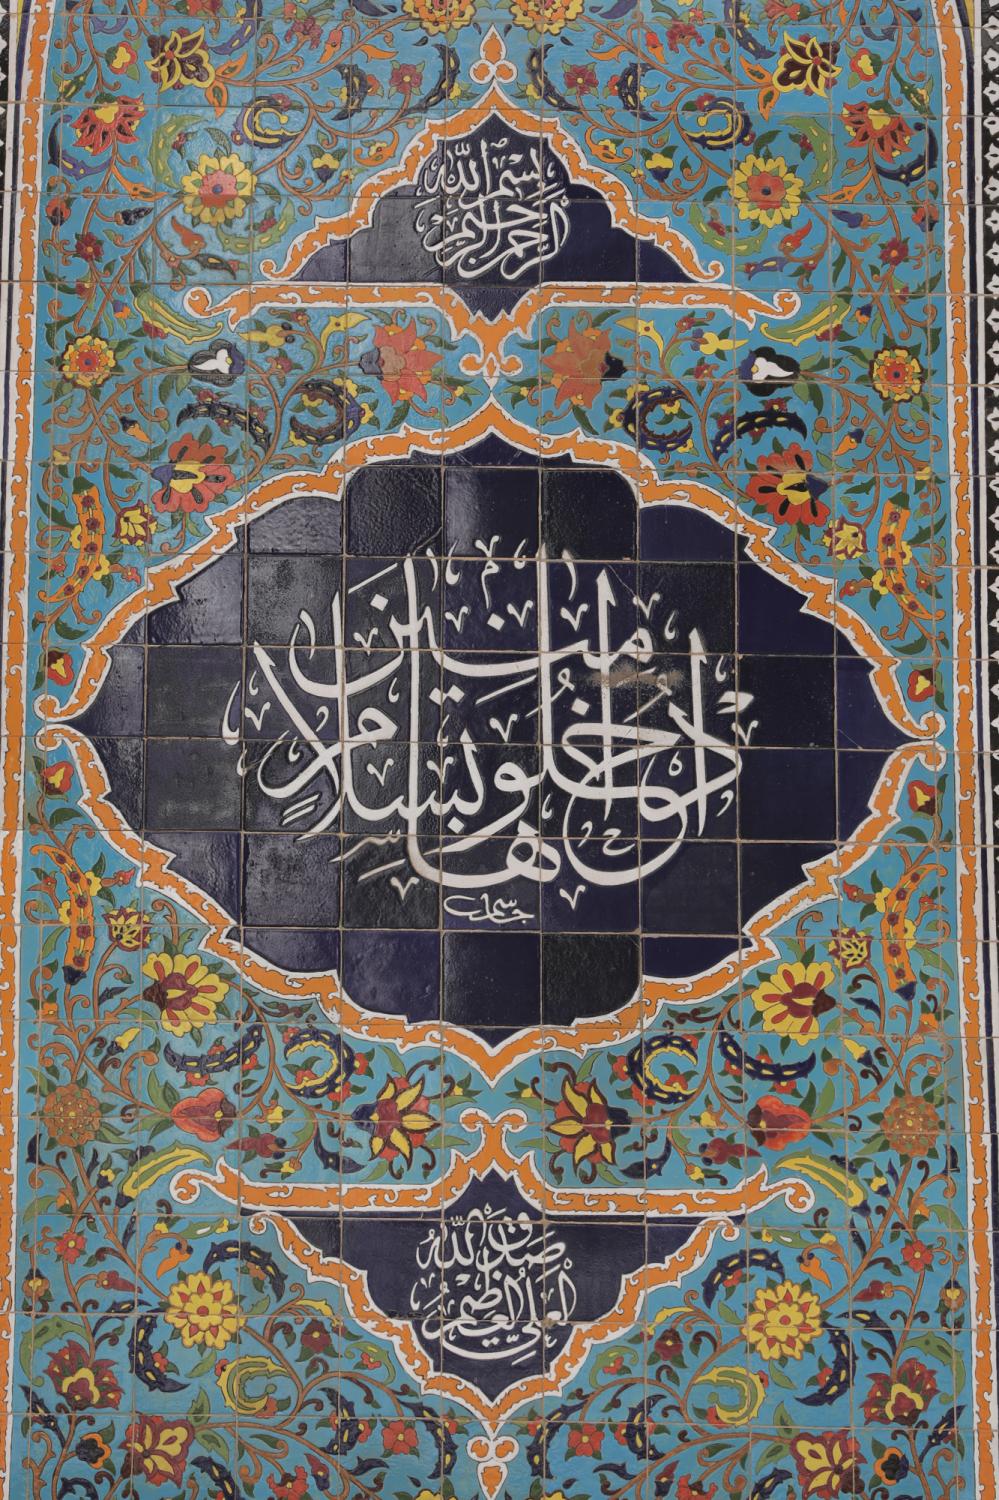 بسم الله
الرحمن الرحيم
ادخلوها بسلام آمنين
صدق الله
العلي العظيم